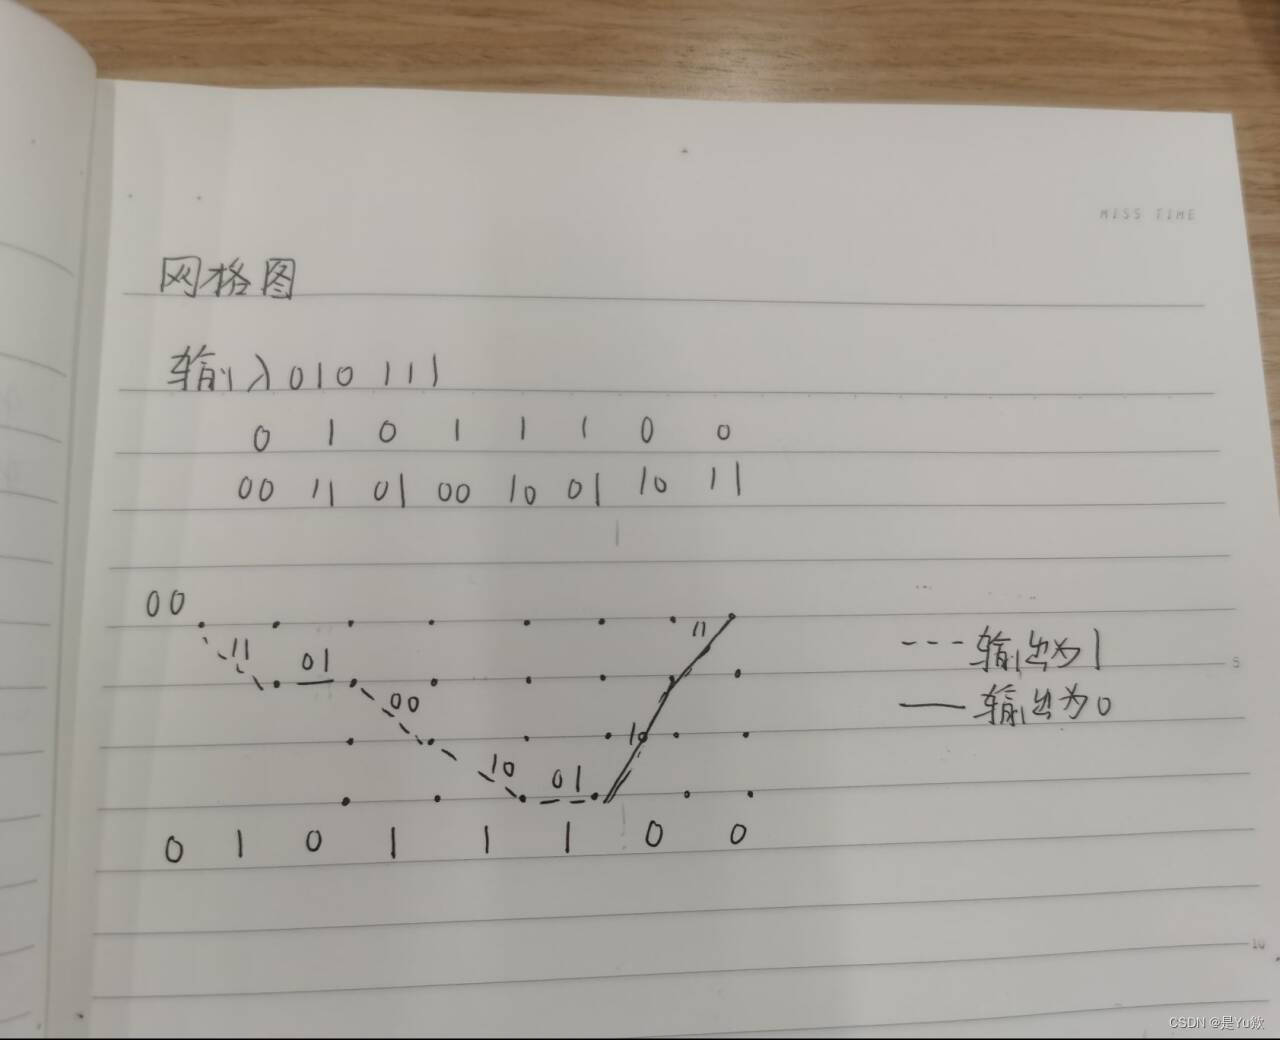 MISS TIME
网格图
输入 010 111
0 1 0 1 1 1 0 0
00 11 01 00 10 01 10 11
00
11 01 00 10 01 10 11
--- 输出为1
— 输出为0
5
0 1 0 1 1 1 0 0
10
CSDN @是Yu欸